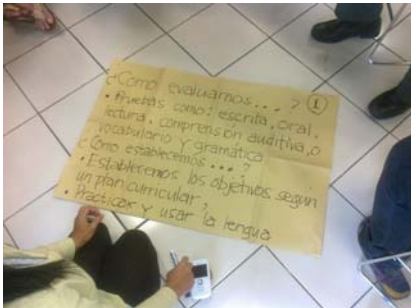 ¿Como evaluamos...? ①
• Pruebas como: escrita, oral,
lectura, comprensión auditiva, o
vocabulario y gramática
¿Cómo establecemos...?
• Establecemos los objetivos según
un plan curricular,
• Practicar y usar la lengua